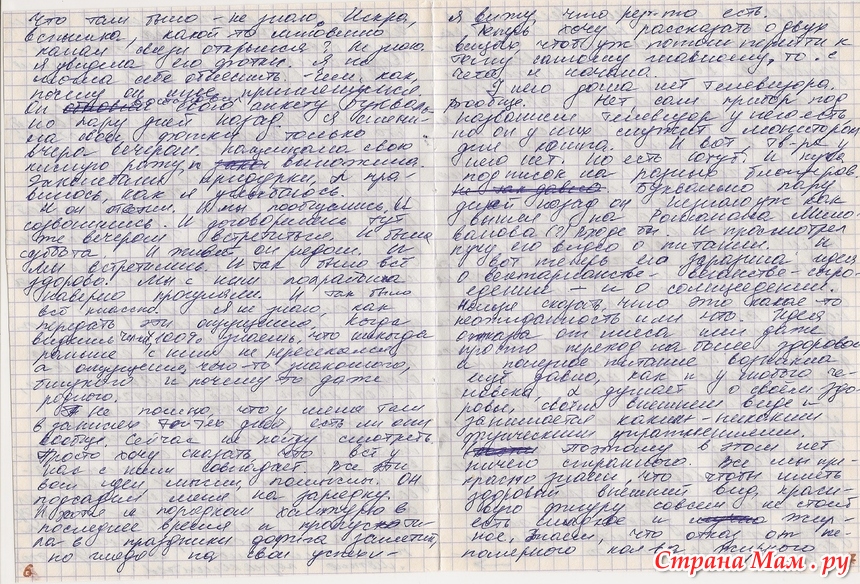 Что там было - не знаю. Искра,
вспышка, какой то мгновенно
канал связи открылся? Не знаю.
Я увидела его фотки. Я не
могла себе объяснить - чем, как,
почему он мне приглянулся.
Он свою анкету букваль-
но пару дней назад. Я сменила
на свои фотки - только
вчера вечером. Повесила свою
кислую рожу,
Заколебали придурки, а нра-
вилось, как я улыбалась.
И он ответил. И мы пообщались, и
созвонились. И договорились тут
же вечером встретиться. И была
суббота. И живёт он рядом. И
мы встретились. И так было всё
здорово! Мы с ним полрайона
наверно прогуляли. И так было
всё классно. Я не знаю, как
передать эти ощущения. Когда
100% знаешь, что никогда
раньше с ним не пересекались
а ощущение чего-то знакомого,
близкого и почему то даже
родного.
Не помню, что у меня там
в записях тех дней, есть ли они
вообще. Сейчас не пойду смотреть.
Просто хочу сказать, что всё у
нас с ним совпадает. Все эти
мои идеи, мысли, помыслы. Он
подсадил меня на зарядку.
И хотя я порядком халтурю в
последнее время и пропусти-
ла в праздники должна заметить,
но глядя на свои успехи -
6
я вижу, что рез-то есть.
Теперь хочу рассказать о двух
вещах, чтоб уж потом перейти к
тому самому главному, то с
чего и начала.
У него дома нет телевизора.
Вообще. Нет, сам прибор под
названием телевизор у него есть,
но он у них служит монитором
для компа. И вот, ТВ-ра у
него нет. Но есть Ютуб. И куча
подписок на разных блогеров.
Буквально пару
дней назад он не знаю уж как
вышел на Романа Мило-
ванова (?) вроде бы. И просмотрел
кучу его видео о питании. И
вот теперь его заразила идея
о вегетарианстве - веганстве - сыро-
едении - и о солнцеедении.
Нельзя сказать, что это какая-то
неожиданность или что. Идея
отказа от мяса или даже
просто переход на более здоровое
и полезное питание возникла
ещё давно, как и у любого че-
ловека, думает о своём здо-
ровье, своём внешнем виде и
занимается какими никакими
физическими упражнениями.
Поэтому в этом нет
ничего странного. Все мы пре-
красно знаем, что чтобы иметь
здоровый внешний вид, краси-
вую фигуру совсем не стоит
есть сладкое и жир-
ное, знаем, что отказ от не-
померного кол-ва жирного
Страна Мам.ру